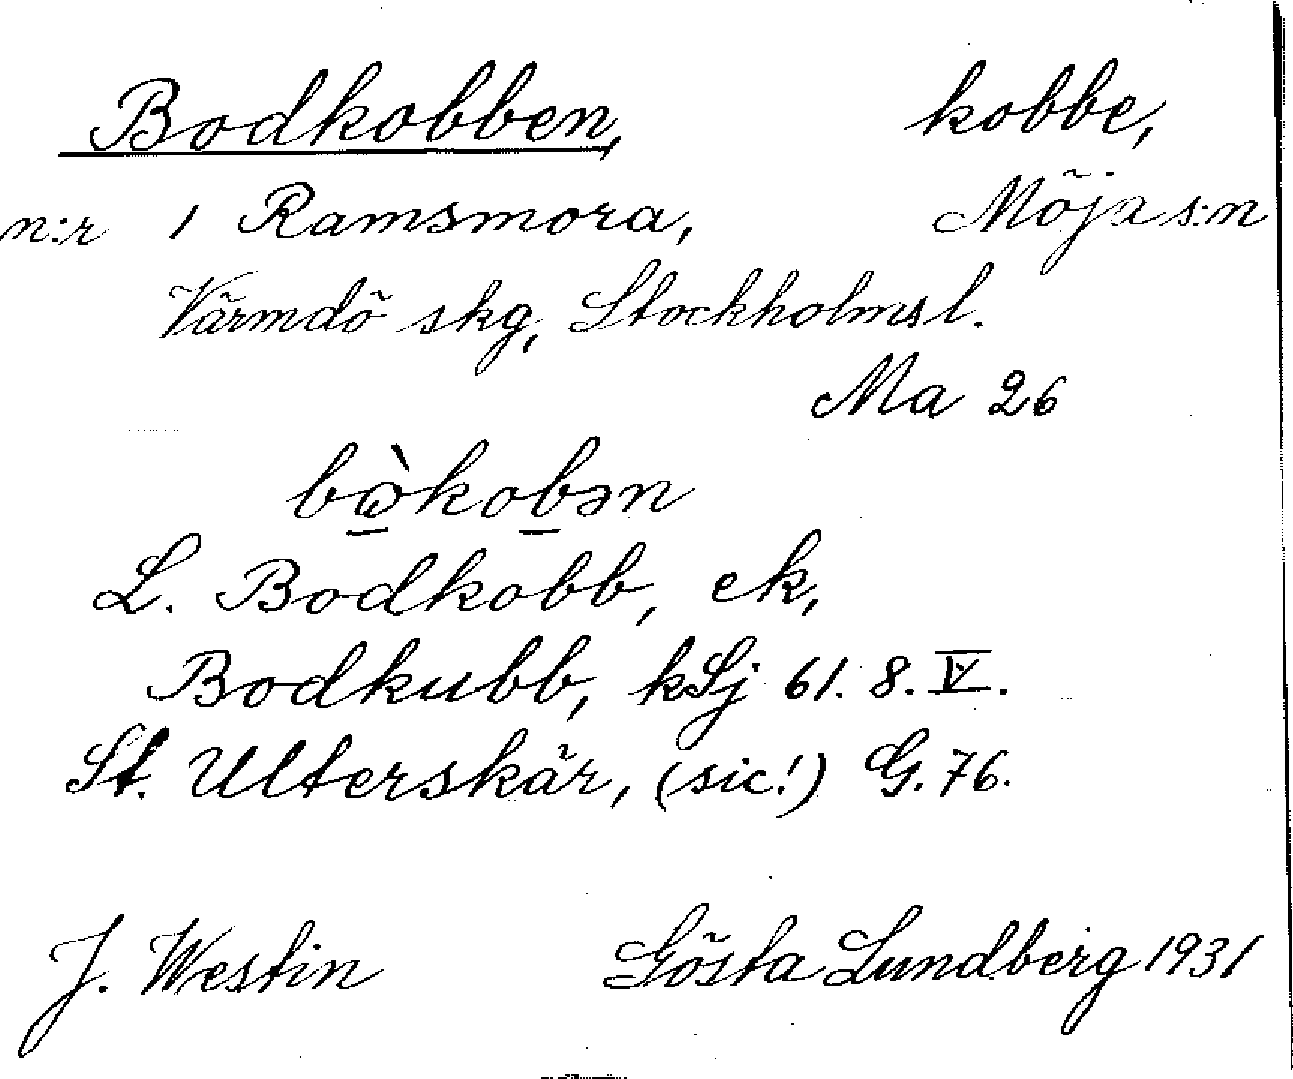 Bodkobben, kobbe,
n:r 1 Ramsmora, Möja s:n
Värmdö skg, Stockholms l.
Ma 26
bὼkobən
L. Bodkobb, ek,
Bodkubb, kSj 61. 8. IV.
St. Ulterskär, (sic!) G. 76.
J. Westin Gösta Lundberg 1931